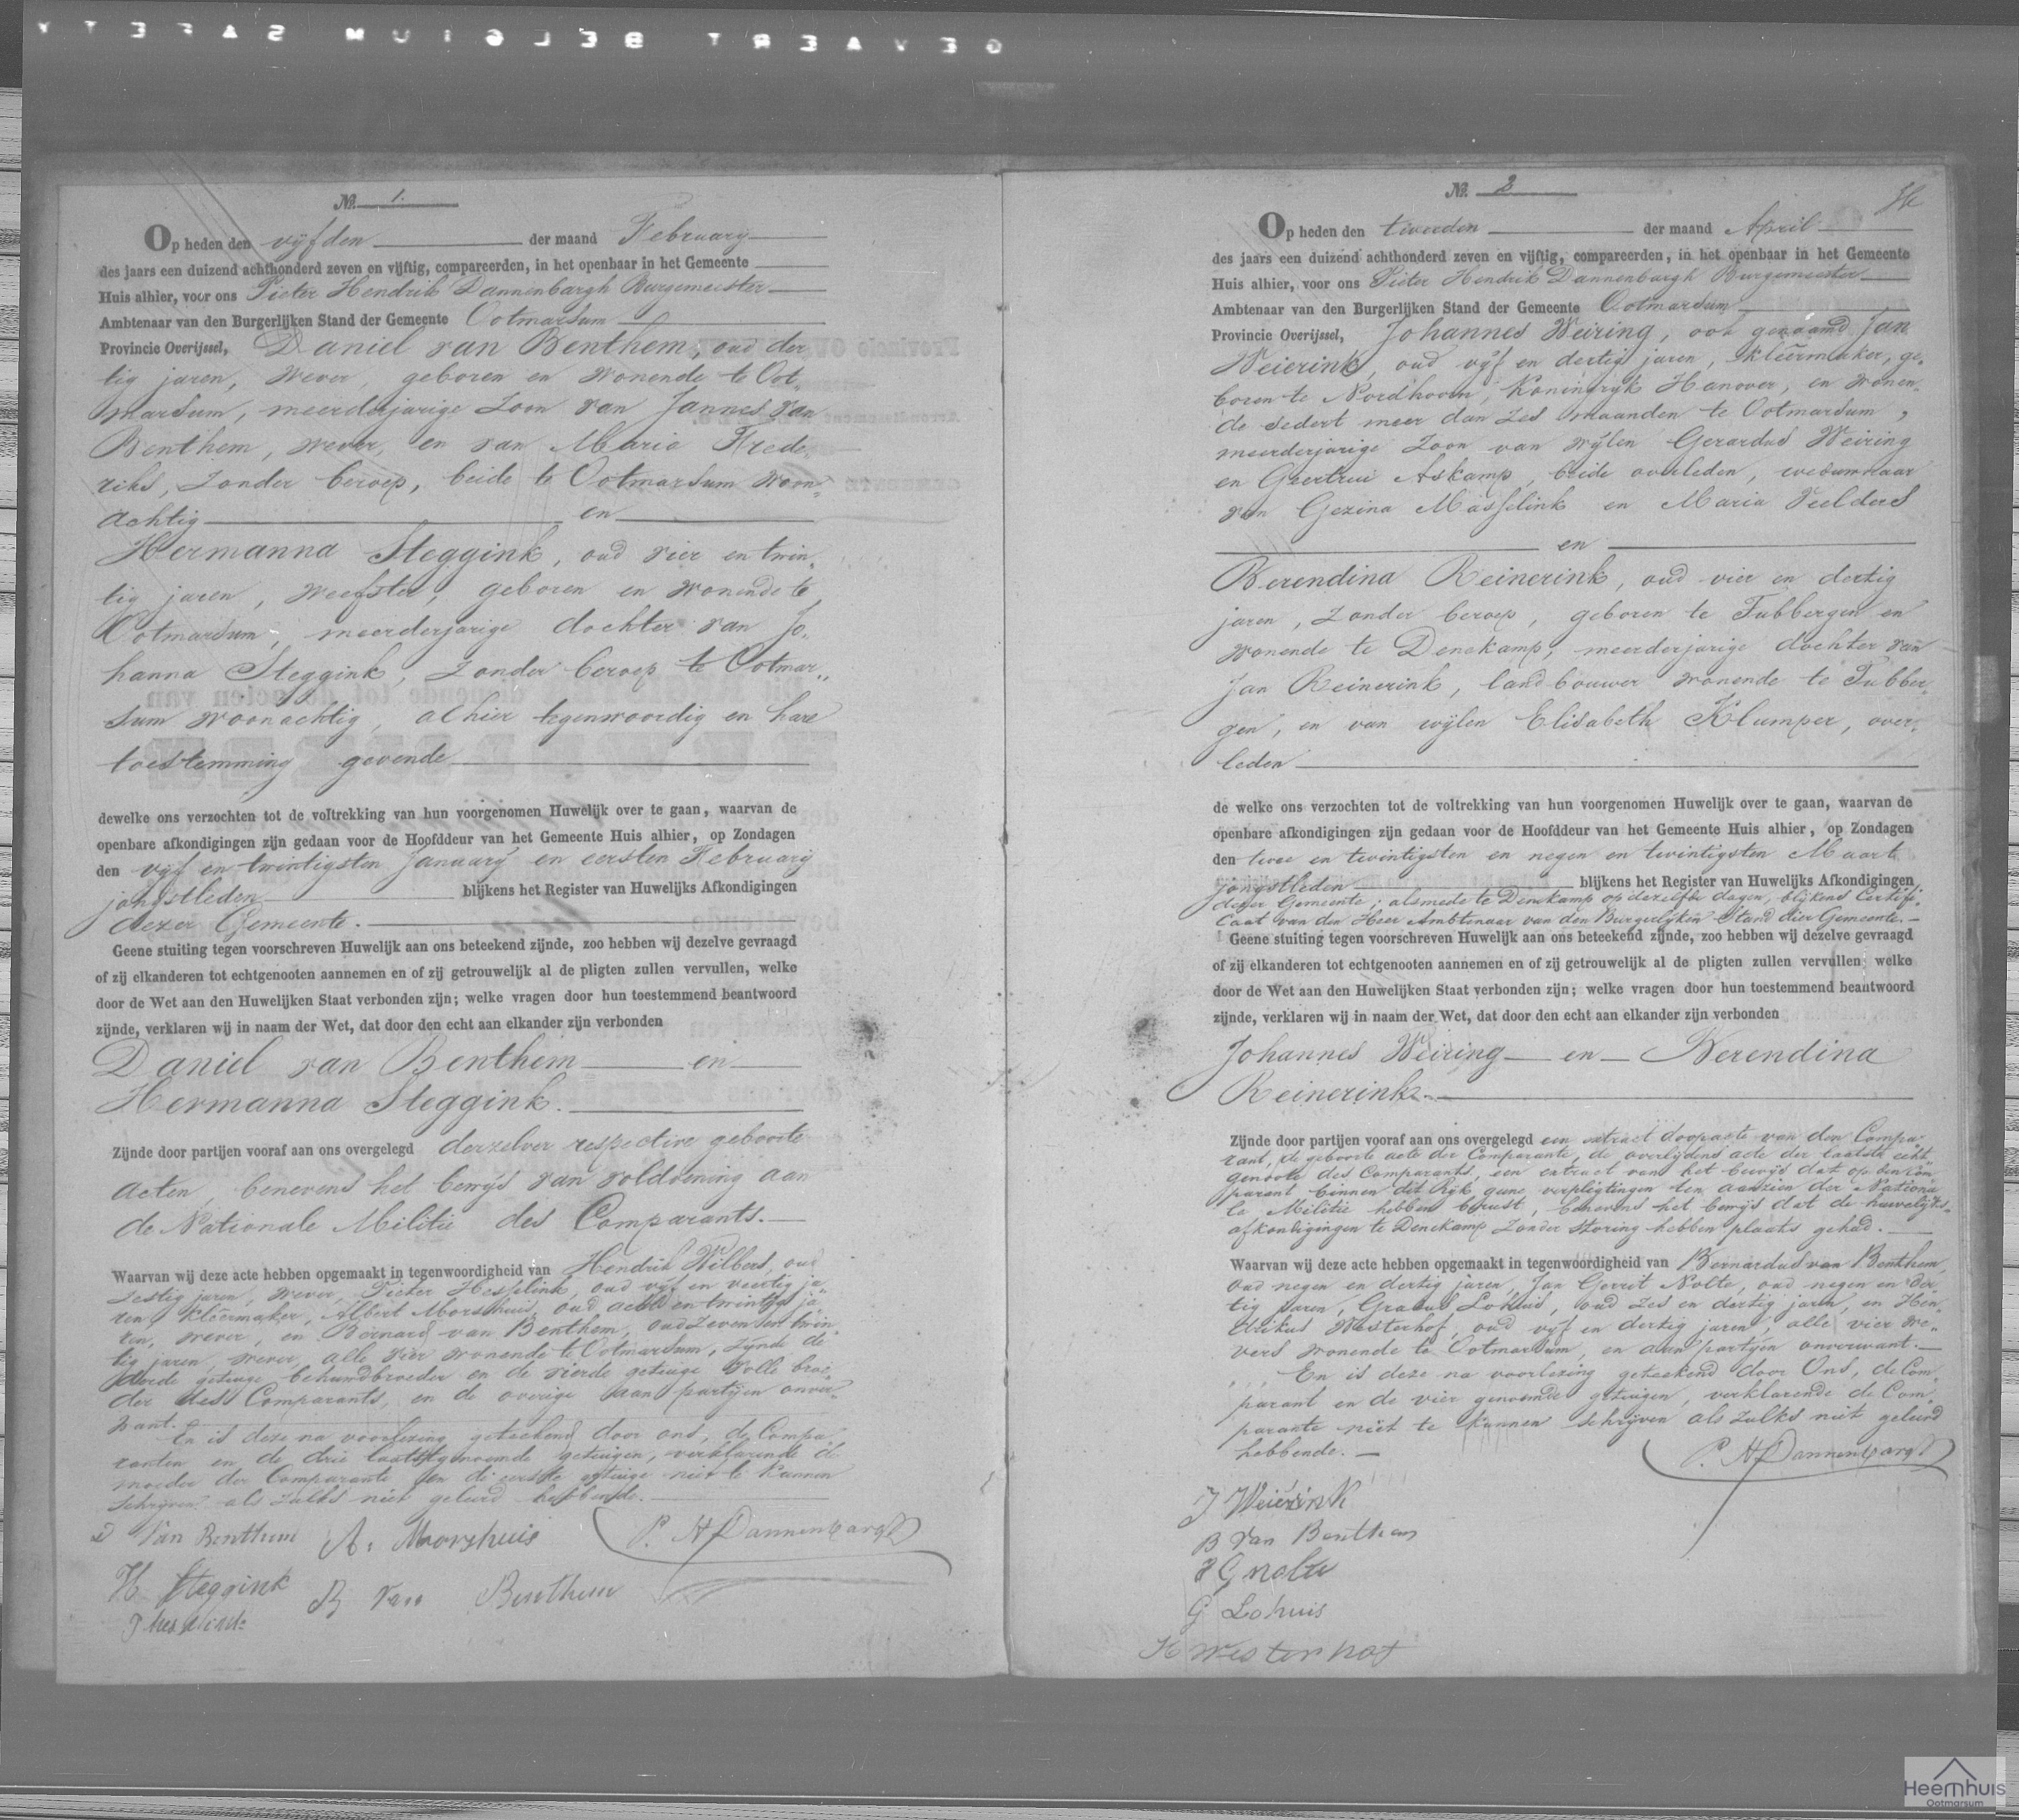 SAFETY MUIGLEB TREAVEG
No. 1.
Op heden den vijfden der maand February
des jaars een duizend achthonderd zeven en vijftig, compareerden, in het openbaar in het Gemeente
Huis alhier, voor ons Pieter Hendrik Dannenbargh Burgemeester
Ambtenaar van den Burgerlijken Stand der Gemeente Ootmarsum
Provincie Overijssel, Daniel van Benthem, oud der
tig jaren, wever, geboren en wonende te Oot„
marsum, meerderjarige Zoon van Jannes van
Benthem, wever, en van Maria Frede„
riks, zonder beroep, beide te Ootmarsum woon„
achtig en
Hermanna Steggink, oud vier en twin„
tig jaren, weefster, geboren en wonende te
Ootmarsum, meerderjarige dochter van Jo„
hanna Steggink, zonder beroep te Ootmar„
sum woonachtig, alhier tegenwoordig en hare
toestemming gevende
dewelke ons verzochten tot de voltrekking van hun voorgenomen Huwelijk over te gaan, waarvan de
openbare afkondigingen zijn gedaan voor de Hoofddeur van het Gemeente Huis alhier, op Zondagen
den vijf en twintigsten January en eersten February
jongstleden blijkens het Register van Huwelijks Afkondigingen
dezer Gemeente.
Geene stuiting tegen voorschreven Huwelijk aan ons beteekend zijnde, zoo hebben wij dezelve gevraagd
of zij elkanderen tot echtgenooten aannemen en of zij getrouwelijk al de pligten zullen vervullen, welke
door de Wet aan den Huwelijken Staat verbonden zijn; welke vragen door hun toestemmend beantwoord
zijnde, verklaren wij in naam der Wet, dat door den echt aan elkander zijn verbonden
Daniel van Benthem en
Hermanna Steggink.
Zijnde door partijen vooraf aan ons overgelegd derzelver respective geboorte
acten, benevens het bewijs van voldoening aan
de Nationale Militie des Comparants.
Waarvan wij deze acte hebben opgemaakt in tegenwoordigheid van Hendrik Wilbers, oud
zestig jaren, wever, Pieter Hesselink, oud vijf en veertig ja„
ren, kleermaker, Albert Morshuis, oud acht en twintig ja„
ren, wever, en Bernard van Benthem, oud zeven en twin„
tig jaren, wever, alle vier wonende te Ootmarsum, zijnde de
derde getuige behuwdbroeder en de vierde getuige volle broe„
der des Comparants, en de overige aan partijen onver„
want.
En is deze na voorlezing geteekend door ons, de Compa„
ranten en de drie laatstgenoemde getuigen, verklarende de
moeder der Comparante en de eerste getuige niet te kunnen
schrijven als zulks niet geleerd hebbende.
D van Benthem A. Morshuis P. H Dannenbargh
H Steggink B van Benthem
P hesselink
No. 2
Op heden den tweeden der maand April
des jaars een duizend achthonderd zeven en vijftig, compareerden, in het openbaar in het Gemeente
Huis alhier, voor ons Pieter Hendrik Dannenbargh Burgemeester
Ambtenaar van den Burgerlijken Stand der Gemeente Ootmarsum
Provincie Overijssel, Johannes Weiring, ook genaamd Jan
Weierink, oud vijf en dertig jaren, kleermaker, ge„
boren te Nordhoorn, Koningryk Hanover, en wonen„
de sedert meer dan zes maanden te Ootmarsum,
meerderjarige Zoon van wijlen Gerardus Weiring
en Geertrui Askamp, beide overleden, weduwnaar
van Gezina Masselink en Maria Veelders
en
Berendina Reinerink, oud vier en dertig
jaren, zonder beroep, geboren te Tubbergen en
wonende te Denekamp, meerderjarige dochter van
Jan Reinerink, landbouwer wonende te Tubber„
gen, en van wijlen Elisabeth Klumper, over„
leden
de welke ons verzochten tot de voltrekking van hun voorgenomen Huwelijk over te gaan, waarvan de
openbare afkondigingen zijn gedaan voor de Hoofddeur van het Gemeente Huis alhier, op Zondagen
den twee en twintigsten en negen en twintigsten Maart
jongstleden blijkens het Register van Huwelijks Afkondigingen
dezer Gemeente; alsmede te Denekamp op dezelfde dagen, blijkens Certifi„
caat van den Heer Ambtenaar van den Burgerlijken Stand dier Gemeente.
Geene stuiting tegen voorschreven Huwelijk aan ons beteekend zijnde, zoo hebben wij dezelve gevraagd
of zij elkanderen tot echtgenooten aannemen en of zij getrouwelijk al de pligten zullen vervullen, welke
door de Wet aan den Huwelijken Staat verbonden zijn; welke vragen door hun toestemmend beantwoord
zijnde, verklaren wij in naam der Wet, dat door den echt aan elkander zijn verbonden
Johannes Weiring en Berendina
Reinerink.
Zijnde door partijen vooraf aan ons overgelegd een extract doopacte van den Compa„
rant, de geboorte acte der Comparante, de overlijdens acte der laatste echt„
genoote des Comparants, een extract van het bewijs dat op den Com„
parant binnen dit Rijk geene verpligtingen ten aanzien der Nationa„
le Militie hebben berust, benevens het bewijs dat de huwelijks„
afkondigingen te Denekamp zonder storing hebben plaats gehad.
Waarvan wij deze acte hebben opgemaakt in tegenwoordigheid van Bernardus van Benthem,
oud negen en dertig jaren, Jan Gerrit Nolte, oud negen en der„
tig jaren, Gradus Lohuis, oud zes en dertig jaren, en Hen„
drikus Westerhof, oud vijf en dertig jaren, alle vier we„
vers wonende te Ootmarsum, en aan partijen onverwant.
En is deze na voorlezing geteekend door Ons, de Com„
parant en de vier genoemde getuigen, verklarende de Com„
parante niet te kunnen schrijven als zulks niet geleerd
hebbende.
P. H Dannenbargh
J Weierink
B van Benthem
J G nolte
G Lohuis
H westerhof
Heemhuis
Ootmarsum